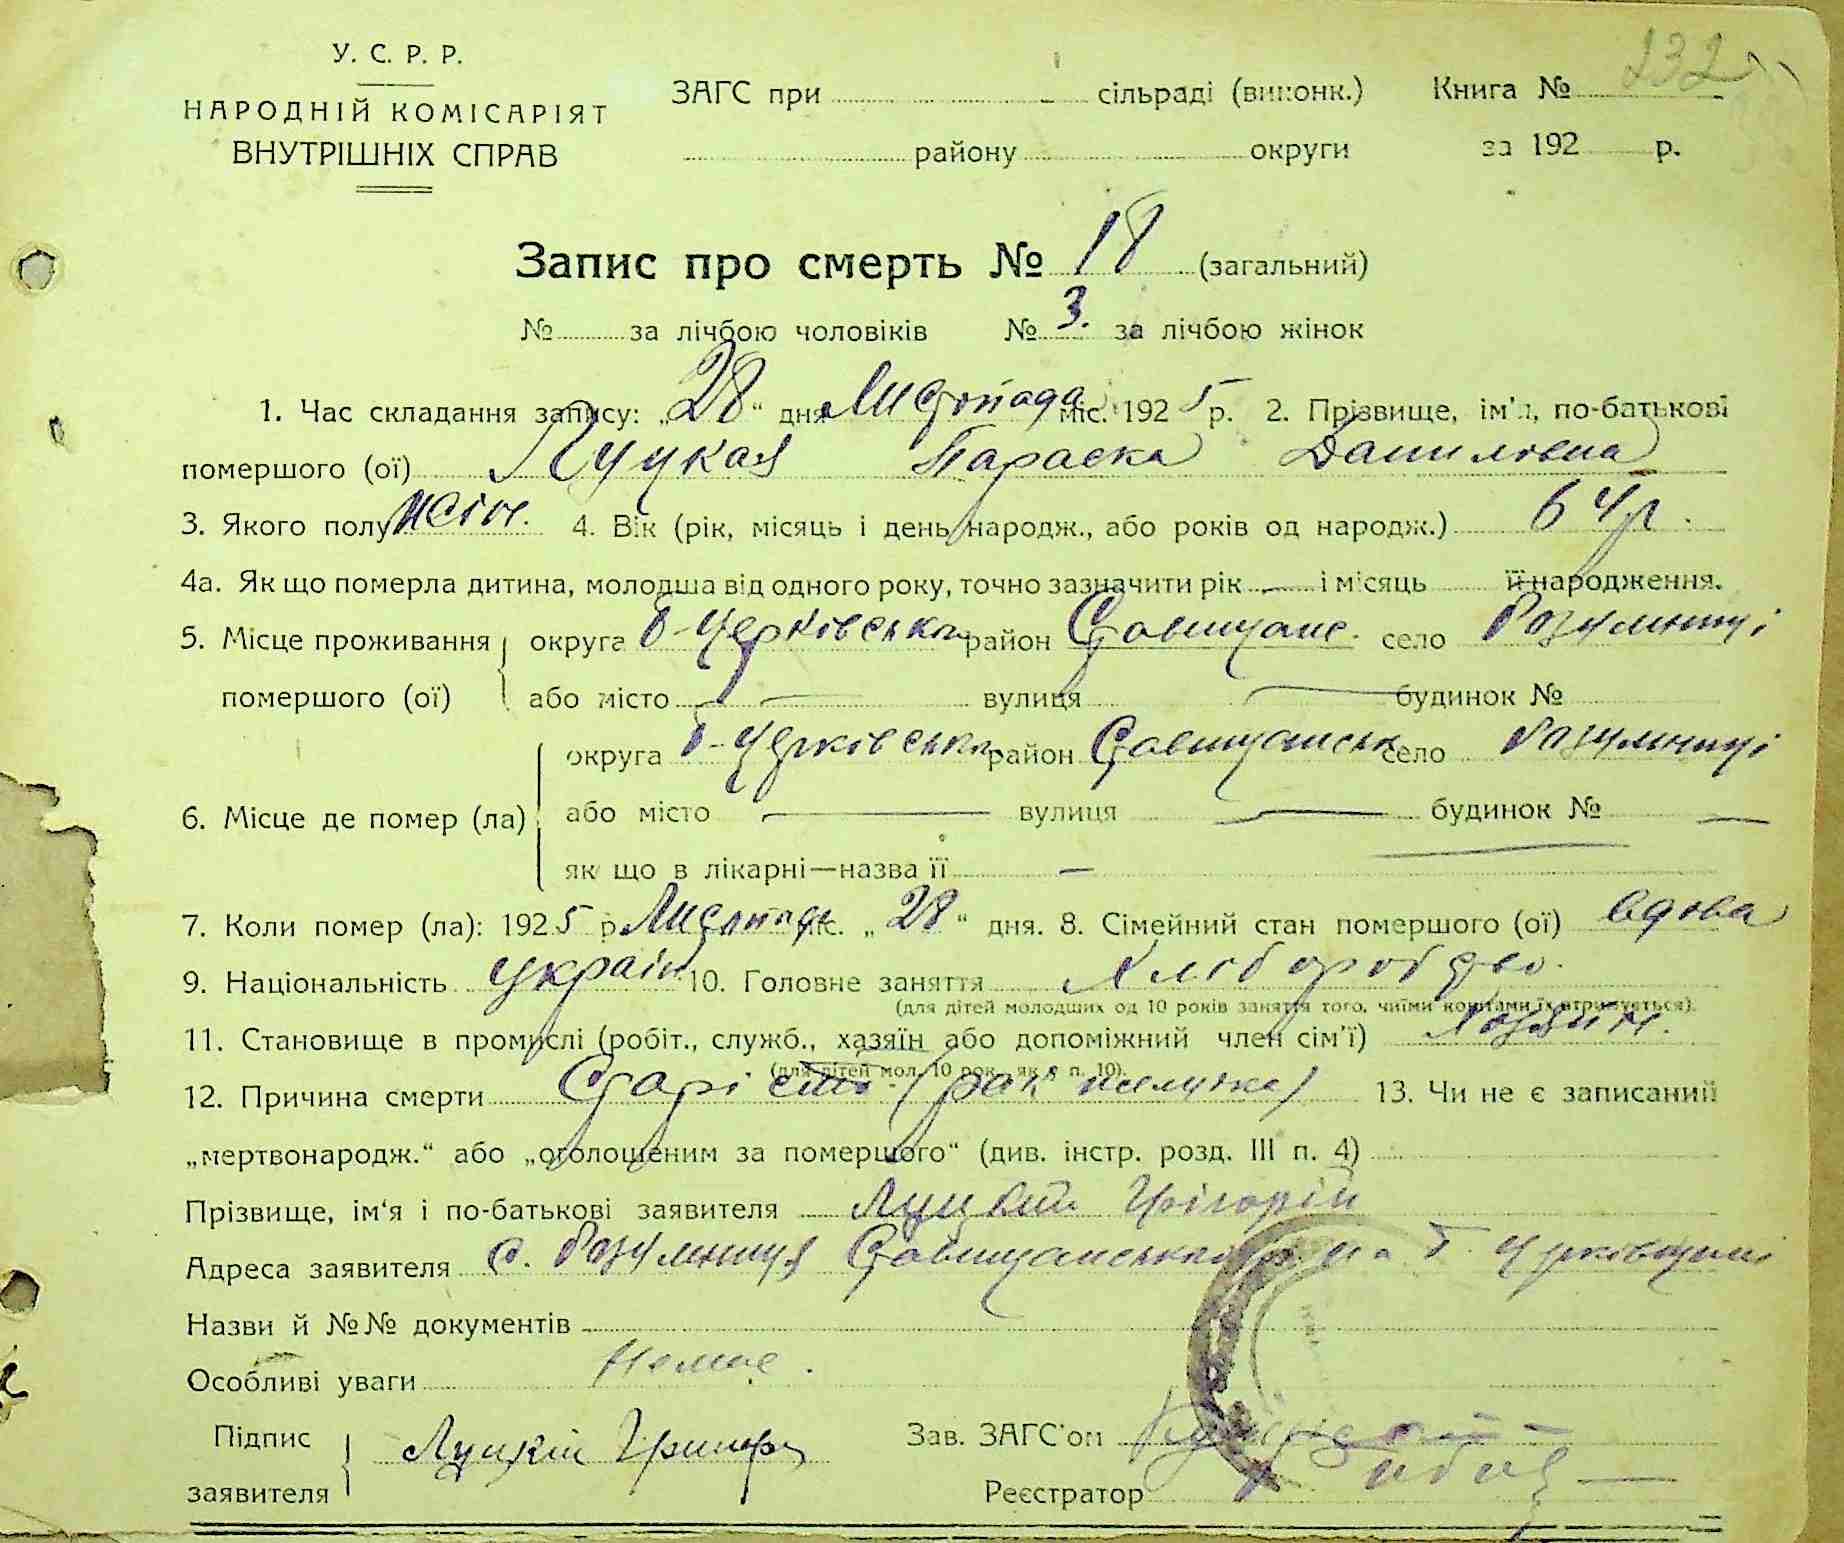 У. С. Р. Р.
НАРОДНІЙ КОМІСАРІЯТ
ВНУТРІШНІХ СПРАВ
ЗАГС при сільраді (виконк.) Книга № 232
району округи за 192 р.
Запис про смерть № 18 (загальний)
№ за лічбою чоловіків № 3. за лічбою жінок
1. Час складання запису: „28“ дня Листопада міс. 1925 р. 2. Прізвище, ім'я, по-батькові
помершого (ої) Луцкая Параска Даниловна
3. Якого полу жіноч. 4. Вік (рік, місяць і день народж., або років од народж.) 64 р.
4а. Як що померла дитина, молодша від одного року, точно зазначити рік — і місяць її народження.
5. Місце проживання округа Б-Церківська район Ставищанс. село Розумниці
помершого (ої) або місто — вулиця — будинок №
округа Б-Церківська район Ставищанськ село Розумниці
6. Місце де помер (ла) або місто — вулиця — будинок № —
як що в лікарні—назва її —
7. Коли помер (ла): 1925 р. Листопада міс. „28“ дня. 8. Сімейний стан помершого (ої) вдова
9. Національність україн. 10. Головне заняття Хліборобство.
(для дітей молодших од 10 років заняття того, чиїми коштами їх отримується).
11. Становище в промислі (робіт., служб., хазяїн або допоміжний член сім'ї) Хазяїн.
(для дітей мол. 10 рок., як в п. 10).
12. Причина смерти Старість (рак желудка) 13. Чи не є записаний
„мертвонародж.“ або „оголошеним за помершого“ (див. інстр. розд. III п. 4)
Прізвище, ім'я і по-батькові заявителя Луцкий Григорій
Адреса заявителя с. Розумниця Ставищанського р. на Б. Церківщині
Назви й №№ документів
Особливі уваги Немає.
Підпис заявителя Луцкій Григор
Зав. ЗАГС'ом
Реєстратор